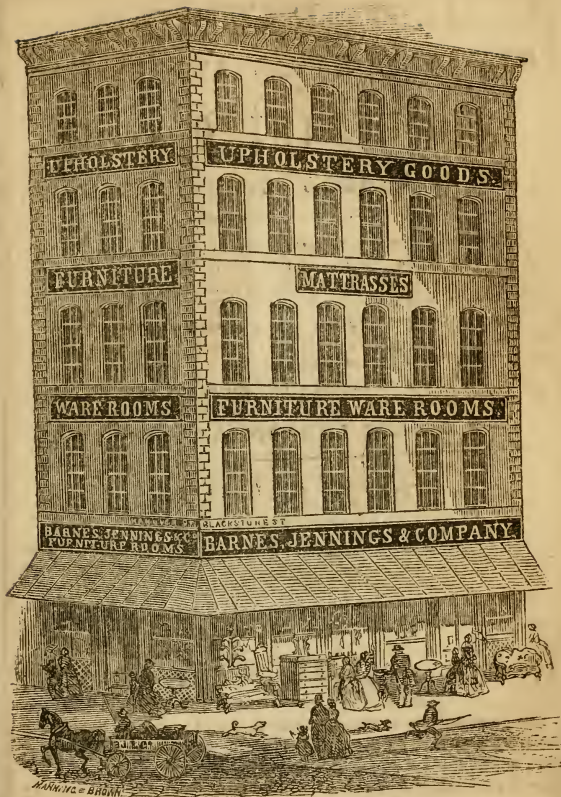 UPHOLSTERY
UPHOLSTERY GOODS.
FURNITURE
MATTRASSES
WARE ROOMS.
FURNITURE WARE ROOMS.
BLACKSTONE ST
BARNES, JENNINGS & Co
FURNITURE ROOMS
BARNES, JENNINGS & COMPANY
MANNING & BROWN